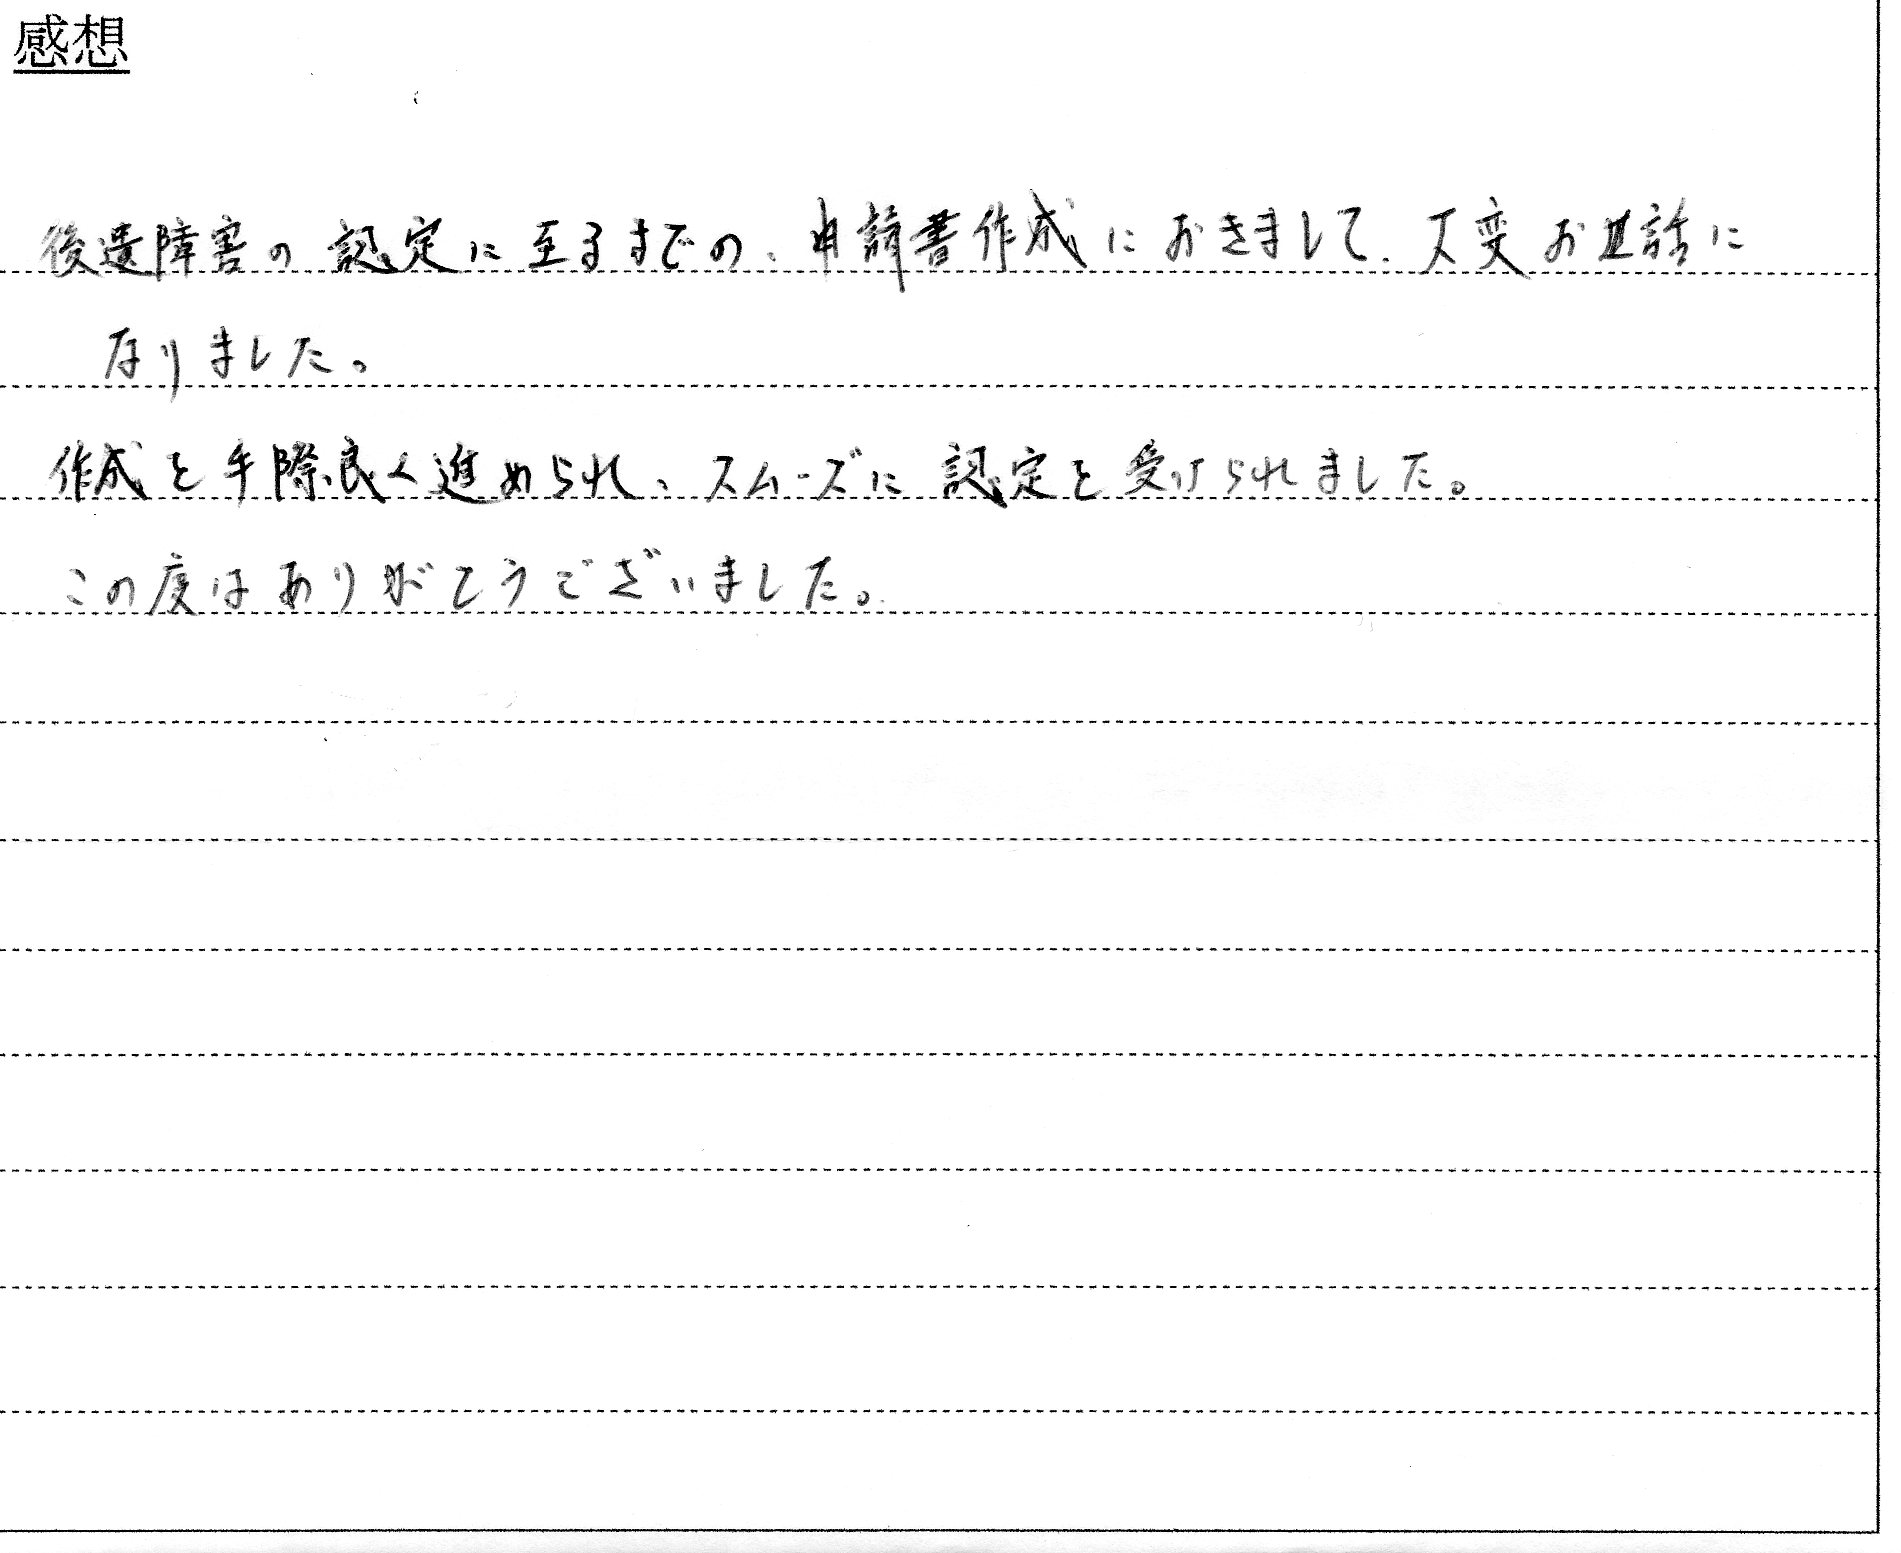 感想
後遺障害の認定に至るまでの、申請書作成におきまして、大変お世話に
なりました。
作成を手際良く進められ、スムーズに認定を受けられました。
この度はありがとうございました。